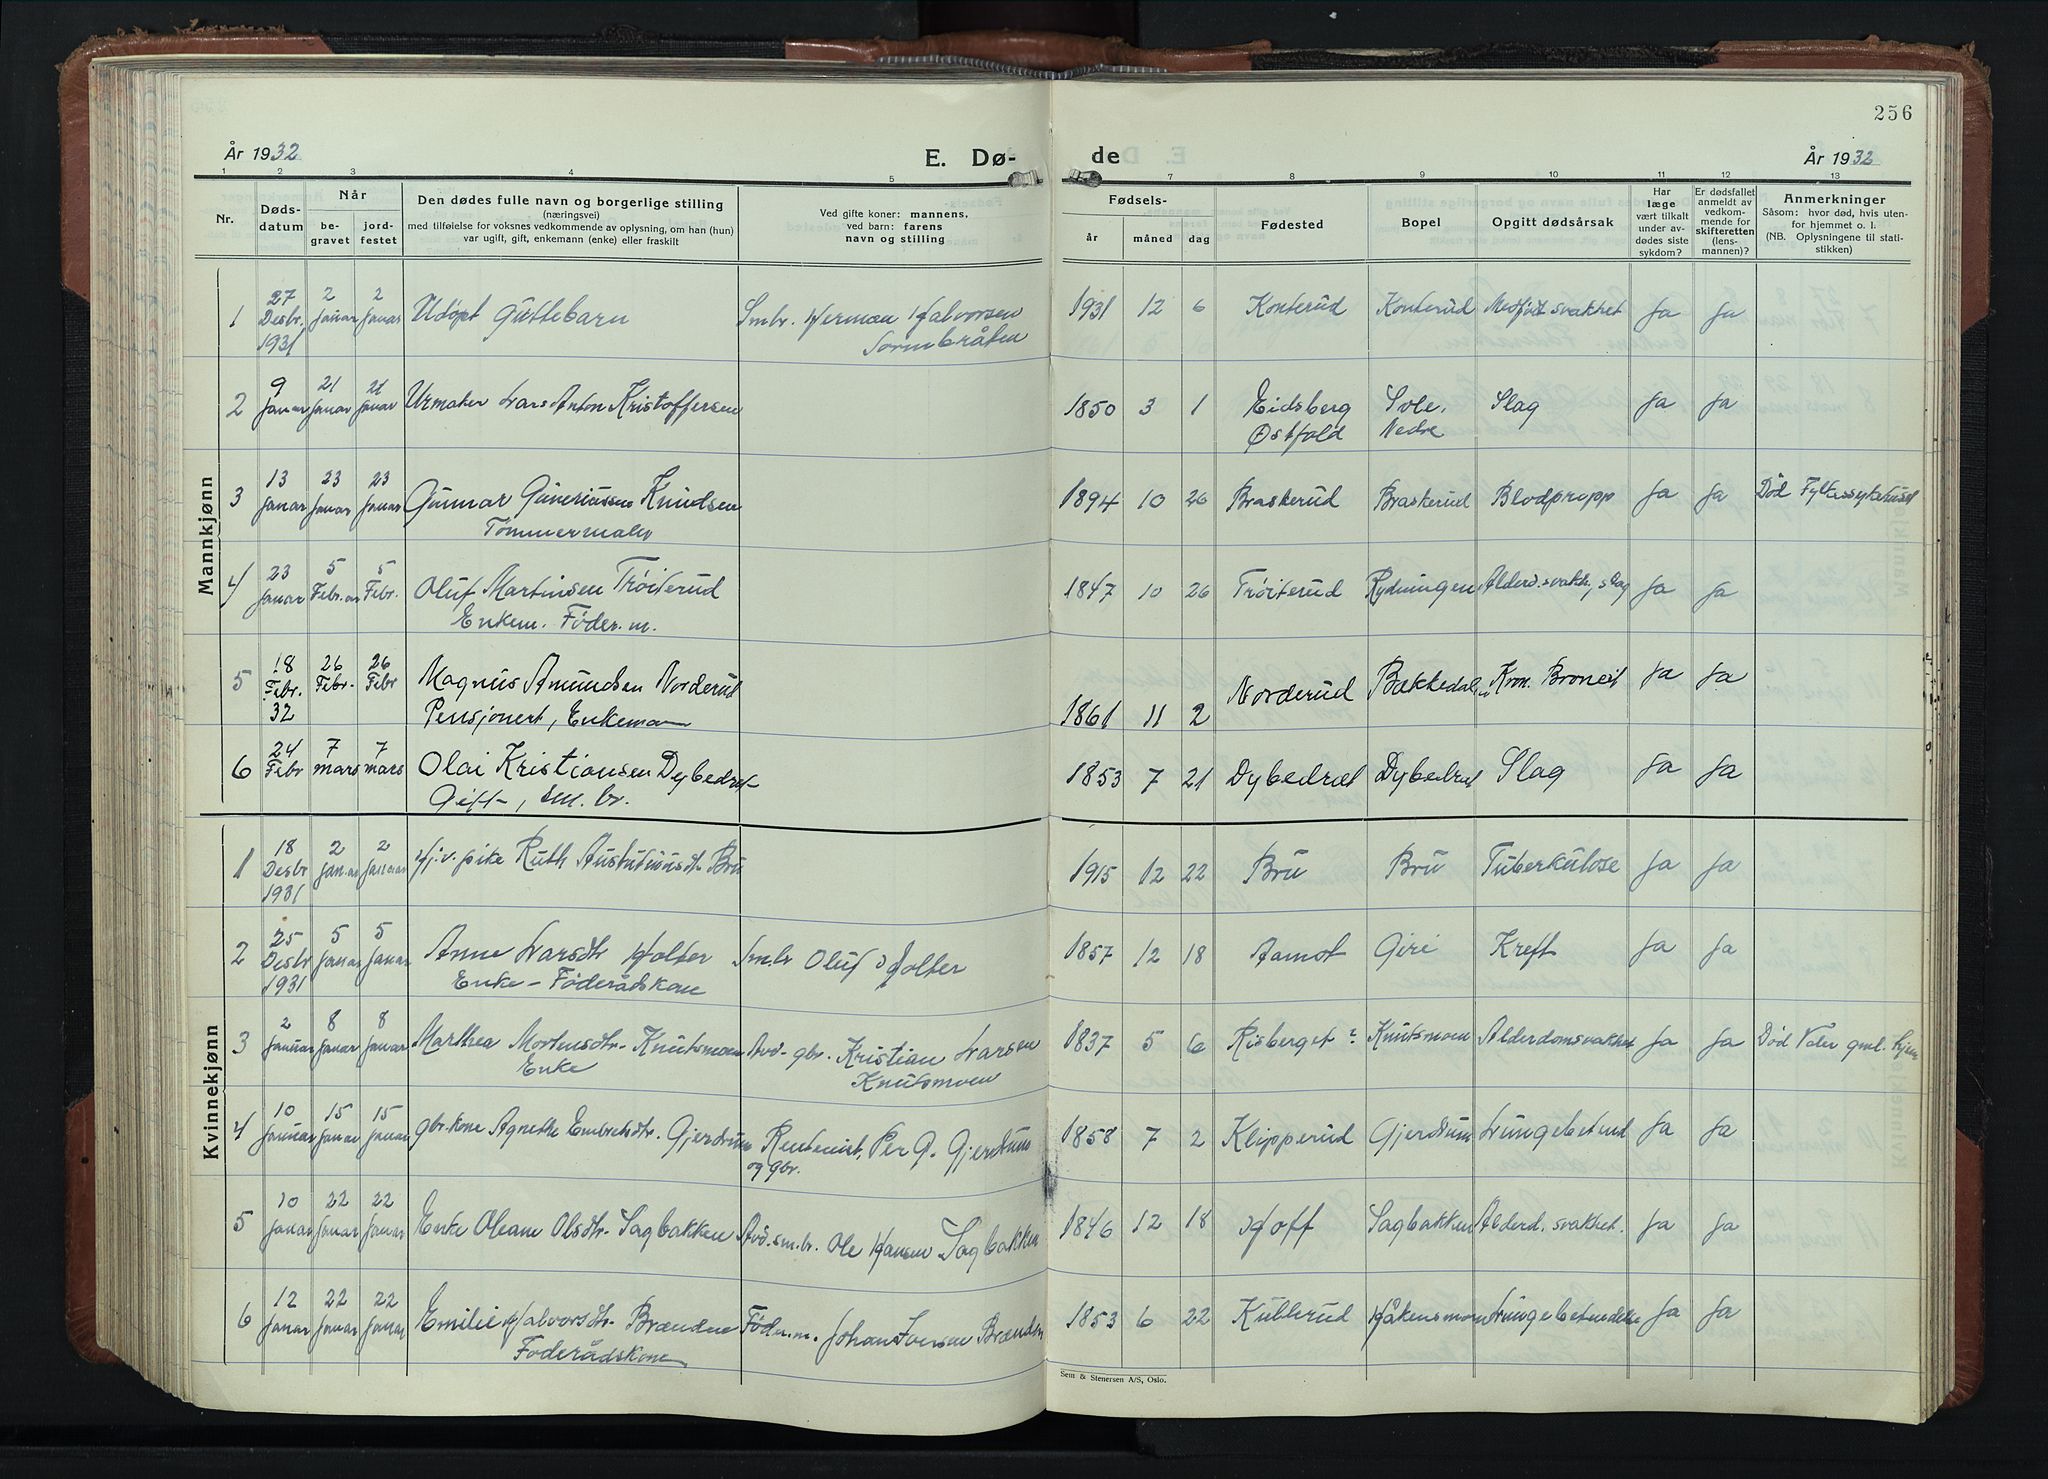 256
År 1932
E. Dø-
de
År 1932
1 2 3 4 5 7 8 9 10 11 12 13
Nr.
Døds-
datum
Når
be-
gravet
jord-
festet
Den dødes fulle navn og borgerlige stilling
(næringsvei)
med tilføielse for voksnes vedkommende av oplysning, om han (hun)
var ugift, gift, enkemann (enke) eller fraskilt
Ved gifte koner: mannens,
ved barn: farens
navn og stilling
Fødsels-
år måned dag
Fødested
Bopel
Opgitt dødsårsak
Har
læge
vært tilkalt
under av-
dødes siste
sykdom?
Er dødsfallet
anmeldt av
vedkom-
mende for
skifteretten
(lens-
mannen)?
Anmerkninger
Såsom: hvor død, hvis uten-
for hjemmet o. l.
(NB. Oplysningene til stati-
stikken)
Mannkjønn
1 27 Desbr. 1931 2 Januar 2 Januar Udøpt Guttebarn Smbr. Herman Halvorsen 1931 12 6 Konterud Konterud Medfødt svakhet Ja Ja
2 9 Januar 21 Januar 21 Januar Urmaker Lars Anton Kristoffersen 1850 3 1 Eidsberg Sole, Slag Ja Ja
Østfold Nedre
3 13 Januar 23 Januar 23 Januar Gunnar Guneriussen Knudsen 1894 10 26 Braskerud Braskerud Blodpropp Ja Ja Død Fylkessykehuset
Tømmermaler
4 23 Januar 5 Febr. 5 Febr. Oluf Martinsen Trøiterud 1847 10 26 Trøiterud Rydningen Alderd. svakh., slag Ja Ja
Enkem. Føder. m.
5 18 Febr. 32 26 Febr. 26 Febr Magnus Amundsen Norderud 1861 11 2 Norderud Bækkedal Kron. Broncit Ja Ja
Pensjonert, Enkemann
6 24 Febr 7 mars 7 mars Olai Kristiansen Dybedræt 1853 7 21 Dybedræt Dybedræt Slag Ja Ja
Gift, sm. br.
Kvinnekjønn
1 18 Desbr 1931 2 Januar 2 Januar Hj.v. pike Ruth Bru 1915 12 22 Bru Bru Tuberkulose Ja Ja
2 25 Desbr 1931 5 Januar 5 Januar Anne Larsdtr Holter Smbr Oluf Holter 1857 12 18 Aamot Giri Kreft Ja Ja
Enke - Føderådskone
3 2 Januar 8 Januar 8 Januar Marthea Mortensdtr. Knutsmoen Avd. gbr. Kristian Larsen 1837 5 6 Risberget Knutsmoen Alderdomsvakhet Ja Ja Død Våler gml. hjem
Enke Knutsmoen
4 10 Januar 15 Januar 15 Januar gbr.kone Agnethe Embretsdtr. Gjerdrum Rentenist, Per G. Gjerdrum 1858 7 2 Klipperud Gjerdrum Lungebetend Ja Ja
og gbr.
5 10 Januar 22 Januar 22 Januar Enke Oleane Olsdtr. Sagbakken Avd. sm.br. Ole Hansen Sagbakken 1846 12 18 Hoff Sagbakken Alderd. svakhet. Ja Ja
6 12 Januar 22 Januar 22 Januar Emilie Halvorsdtr. Brænden Føder.m. Johan Iversen Brænden 1853 6 22 Kublerud Håkensmoen Lungebetendelse Ja Ja
Føderådskone
Sem & Stenersen A/S, Oslo.